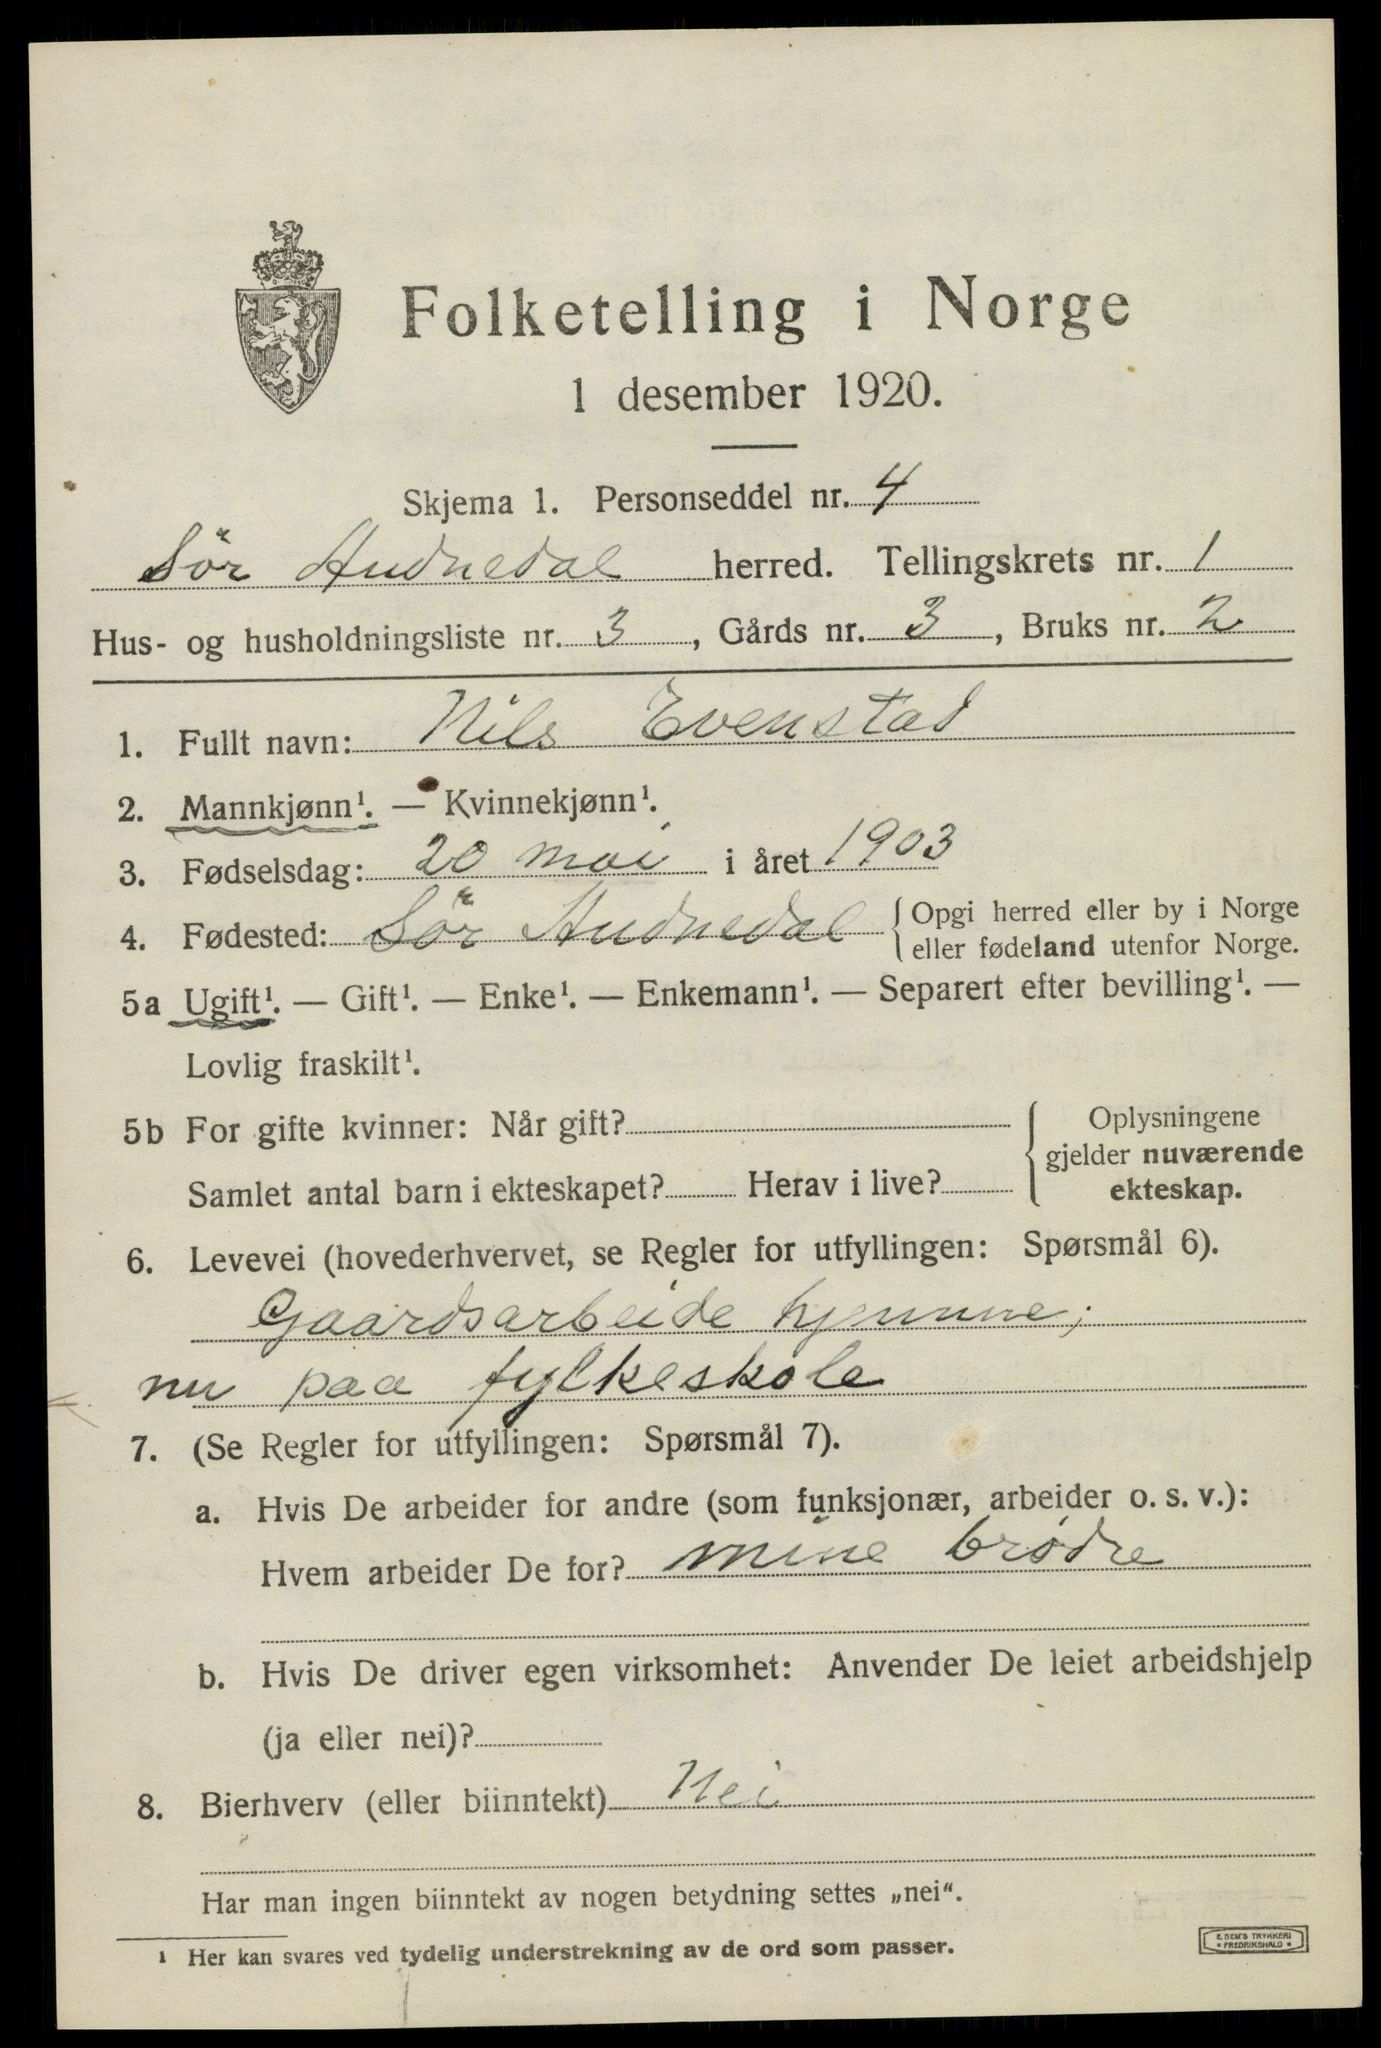 Folketelling i Norge
1 desember 1920.
Skjema 1. Personseddel nr. 4
Sör Audnedal herred. Tellingskrets nr. 1
Hus- og husholdningsliste nr. 3, Gårds nr. 3, Bruks nr. 2
1. Fullt navn: Nils Evenstad
2. Mannkjønn¹. — Kvinnekjønn¹.
3. Fødselsdag: 20 mai i året 1903
4. Fødested: Sör Audnedal {Opgi herred eller by i Norge
eller fødeland utenfor Norge.
5a Ugift¹. — Gift¹. — Enke¹. — Enkemann¹. — Separert efter bevilling¹. —
Lovlig fraskilt¹.
5b For gifte kvinner: Når gift?
Samlet antal barn i ekteskapet? Herav i live?
{Oplysningene
gjelder nuværende
ekteskap.
6. Levevei (hovederhvervet, se Regler for utfyllingen: Spørsmål 6).
Gaardsarbeide hjemme;
nu paa fylkeskole
7. (Se Regler for utfyllingen: Spørsmål 7).
a. Hvis De arbeider for andre (som funksjonær, arbeider o. s. v.):
Hvem arbeider De for? mine brødre
b. Hvis De driver egen virksomhet: Anvender De leiet arbeidshjelp
(ja eller nei)?
8. Bierhverv (eller biinntekt) Nei
Har man ingen biinntekt av nogen betydning settes „nei“.
¹ Her kan svares ved tydelig understrekning av de ord som passer.
E. SEM'S TRYKKERI
* FREDRIKSHALD *